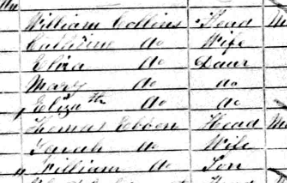 William Collins Head
Catherine do Wife
Eliza do Daur
Mary do do
Elizth do do
Thomas Ebben Head
Sarah do Wife
William do Son